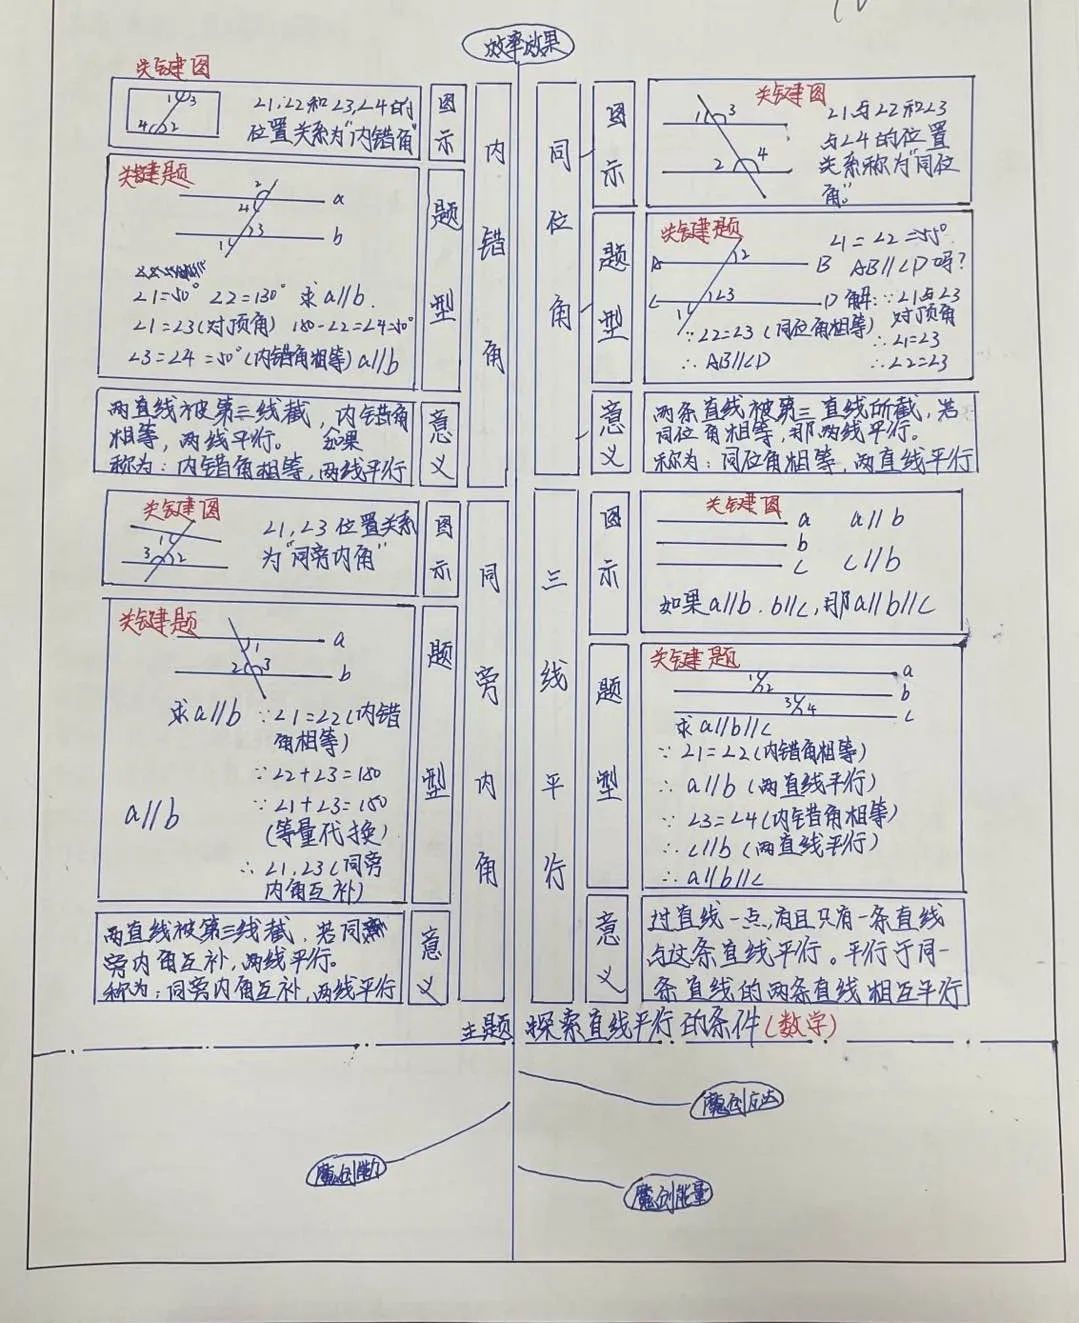 效率效果
关键图
∠1,∠2和∠3,∠4的
位置关系为"内错角"
1 3
4 2
图示
内错角
关键题
2
4
a
3
1
b
∠1=50° ∠2=130° 求a//b.
∠1=∠3(对顶角) 180-∠2=∠4=50°
∠3=∠4=50°(内错角相等) a//b
题型
两直线被第三线截,内错角
相等,两线平行。 如果
称为:内错角相等,两线平行
意义
同位角
图示
关键图
1 3
2 4
∠1与∠2和∠3
与∠4的位置
关系称为"同位
角"。
题型
关键题
A B
2
C D
∠3
1
∠1=∠2=55°.
AB//CD吗?
解:∵∠1与∠3
对顶角
∴∠1=∠3
∴∠2=∠3
∵∠2=∠3(同位角相等)
∴AB//CD
意义
两条直线被第三直线所截,若
同位角相等,那两线平行。
称为:同位角相等,两直线平行
关键图
1
3 2
∠1,∠3位置关系
为"同旁内角"
图示
同旁内角
关键题
1
a
2 3
b
求a//b ∵∠1=∠2(内错
角相等)
∵∠2+∠3=180
∵∠1+∠3=180
(等量代换)
a//b
∴∠1,∠3(同旁
内角互补)
题型
两直线被第三线截,若同
旁内角互补,两线平行。
称为:同旁内角互补,两线平行
意义
三线平行
图示
关键图
a a//b
b
c c//b
如果a//b.b//c,那a//b//c
题型
关键题
a
1 2
b
3 4
c
求a//b//c
∵∠1=∠2(内错角相等)
∴a//b(两直线平行)
∵∠3=∠4(内错角相等)
∴c//b(两直线平行)
∴a//b//c
意义
过直线一点,有且只有一条直线
与这条直线平行。平行于同一
条直线的两条直线相互平行
主题 探索直线平行的条件(数学)
魔创应达
魔创能力
魔创能量